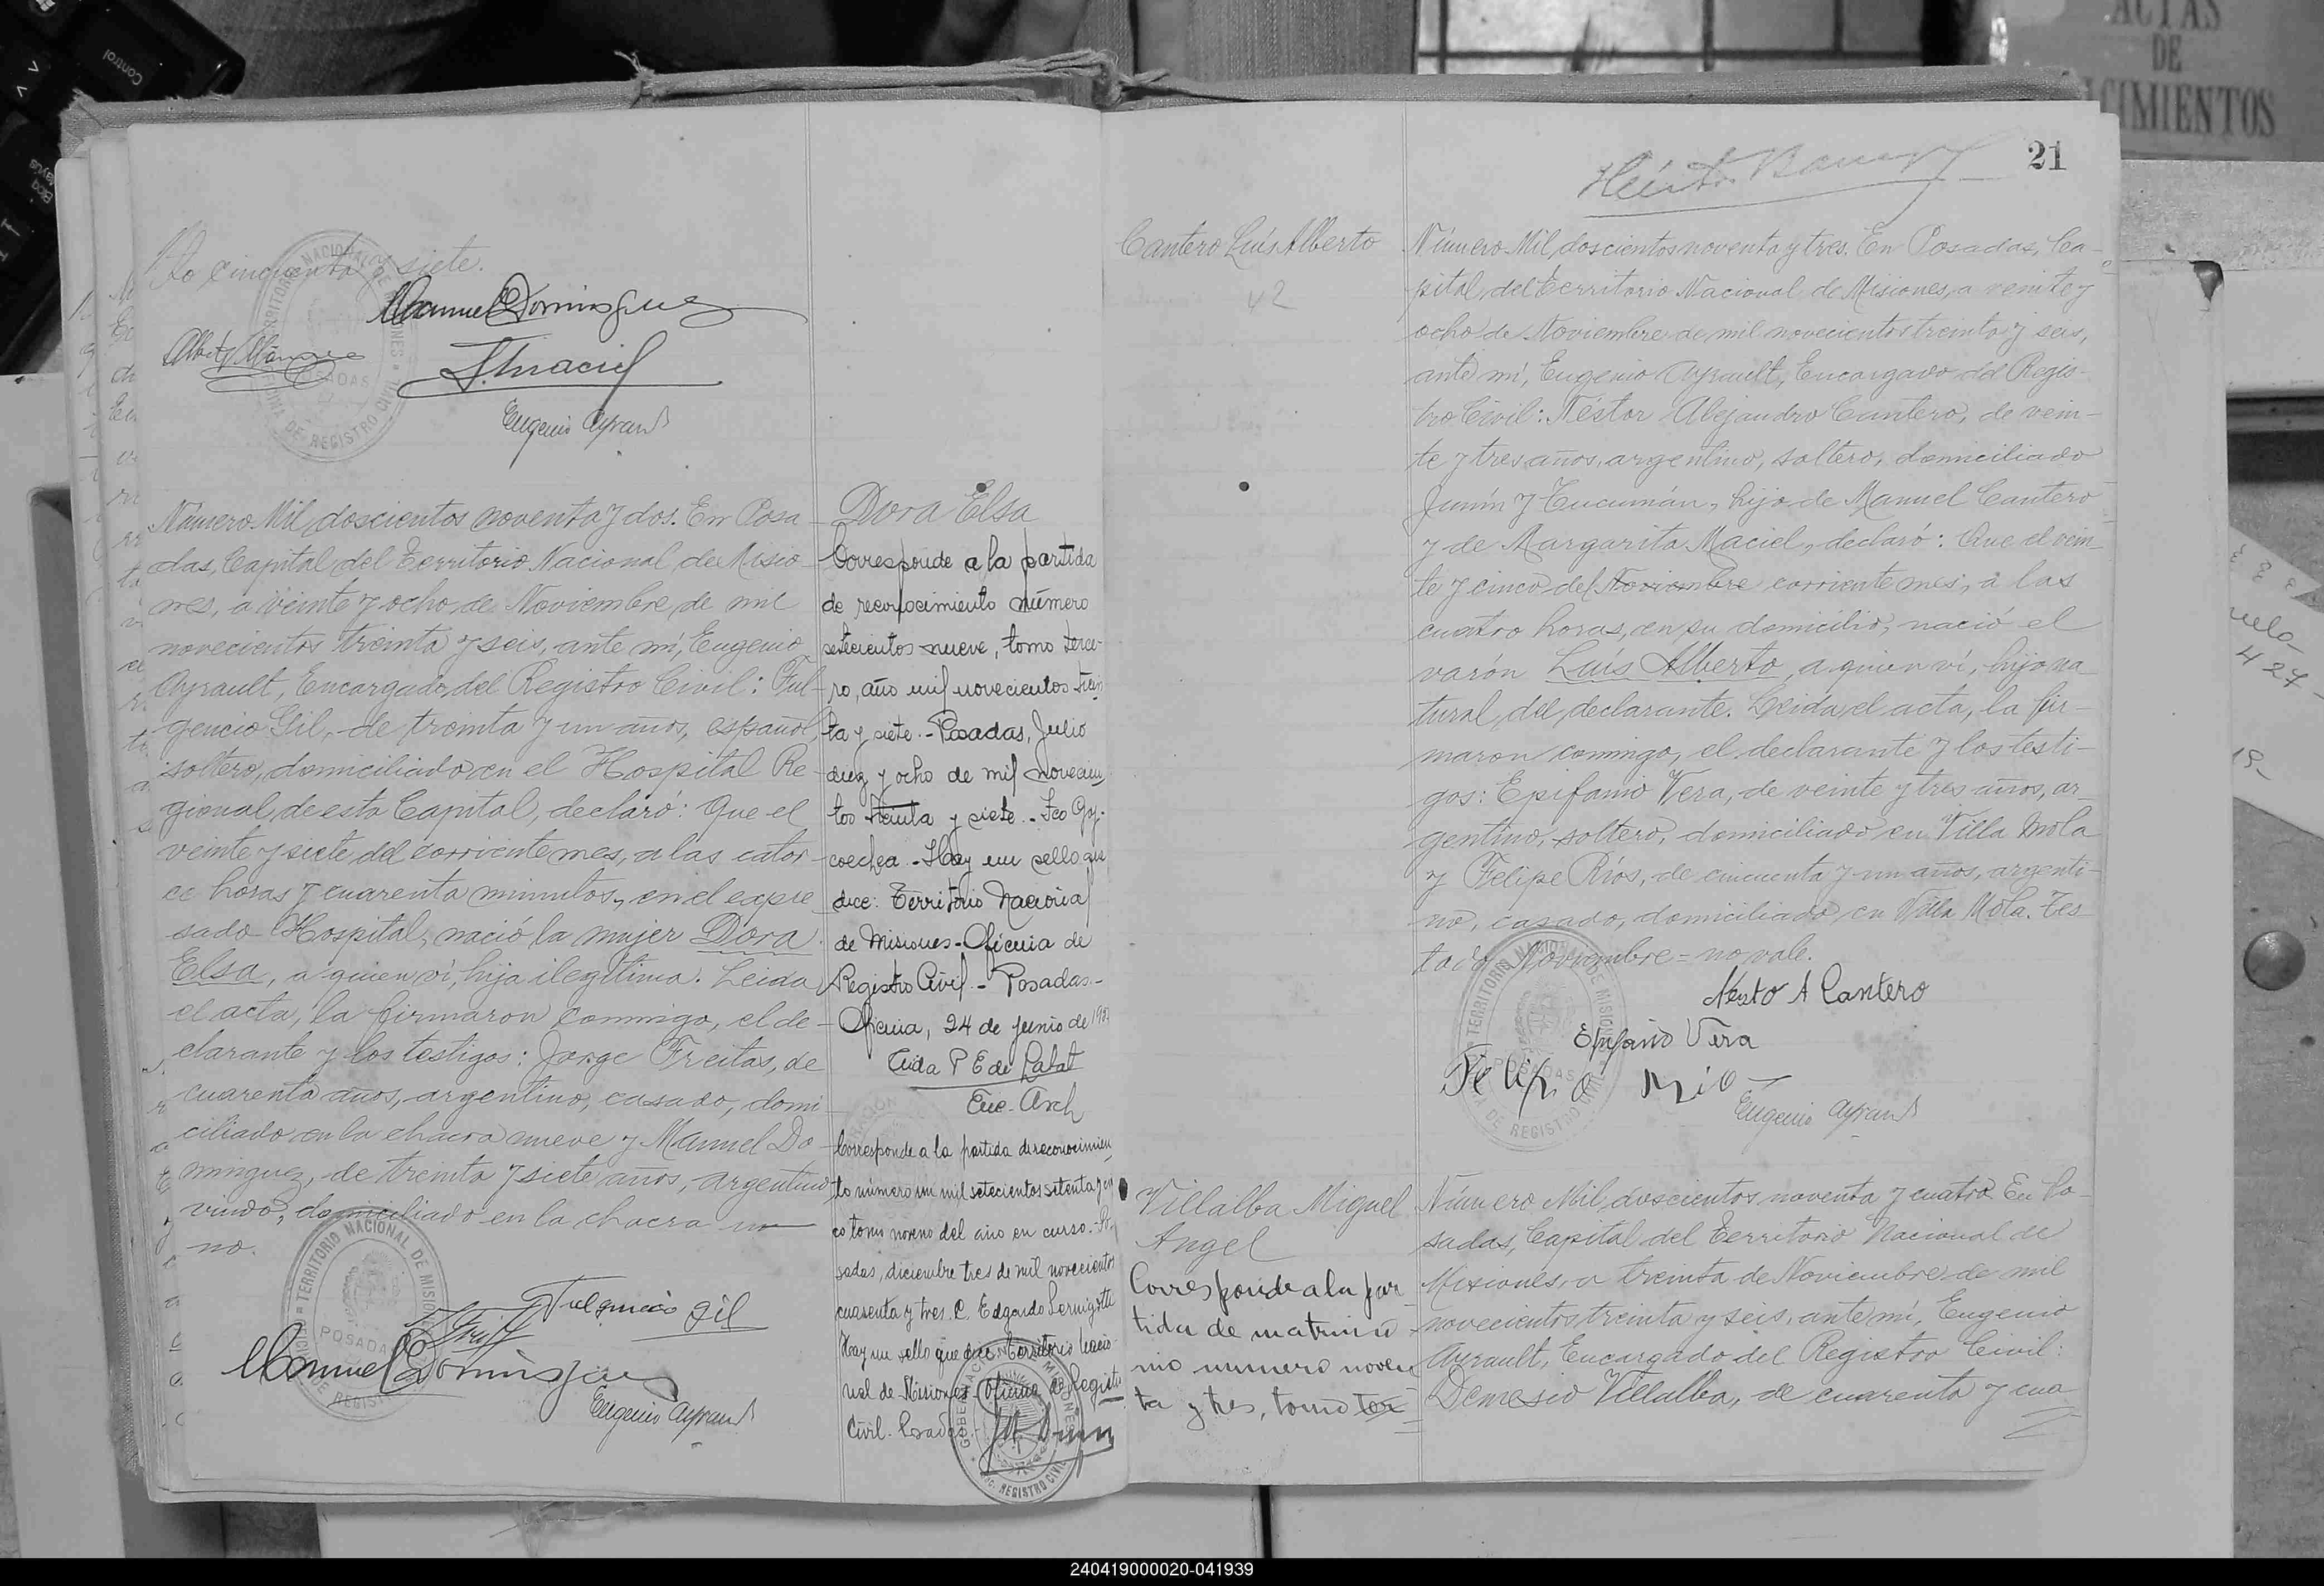 to cincuenta y siete.
Manuel Dominguez
Eugenio Ayrault
Número Mil doscientos noventa y dos. En Posa
das, Capital del Territorio Nacional de Misio
nes, a veinte y ocho de Noviembre de mil
novecientos treinta y seis, ante mí, Eugenio
Ayrault, Encargado del Registro Civil: Ful-
gencio Gil, de treinta y un años, español,
soltero, domiciliado en el Hospital Re-
gional de esta Capital, declaró: Que el
veinte y siete del corriente mes, a las cator-
ce horas y cuarenta minutos, en el expre
sado Hospital, nació la mujer Dora
Elsa, a quien ví, hija ilegítima. Leida
el acta, la firmaron conmigo, el de-
clarante y los testigos: Jorge Freitas, de
cuarenta años, argentino, casado, domi-
ciliado en la chacra nueve y Manuel Do-
minguez, de treinta y siete años, argentino
viudo, domiciliado en la chacra u
no.
Fulgencio Gil
Manuel Dominguez
Eugenio Ayrault
TERRITORIO NACIONAL DE MISIONES
POSADAS
OFICINA DE REGISTRO CIVIL
Dora Elsa
Corresponde a la partida
de reconocimiento número
setecientos nueve, tomo terce-
ro, año mil novecientos trein
ta y siete.- Posadas, Julio
diez y ocho de mil novecien
tos treinta y siete.- Fco Goy-
coechea.- Hay un sello que
dice: Territorio Nacional
de Misiones- Oficina de
Registro Civil - Posadas.-
Oficina, 24 de junio de
P E de Labat
Enc. Arch
Corresponde a la partida de reconocimien
to número un mil setecientos setenta y cin
co tomo noveno del año en curso.- Po
sadas, diciembre tres de mil novecientos
cuarenta y tres. C. Edgardo
Hay un sello que dice: Territorio Nacio
nal de Misiones Oficina de Registro
Civil. Posadas-
21
Cantero Luís Alberto
42
Número Mil doscientos noventa y tres. En Posadas, Ca-
pital del Territorio Nacional de Misiones, a veinte y
ocho de Noviembre de mil novecientos treinta y seis,
ante mí, Eugenio Ayrault, Encargado del Regis-
tro Civil: Néstor Alejandro Cantero, de vein-
te y tres años, argentino, soltero, domiciliado
Junín y Tucumán, hijo de Manuel Cantero
y de Margarita Maciel, declaró: Que el vein-
te y cinco del Noviembre corriente mes, a las
cuatro horas, en su domicilio, nació el
varón Luís Alberto, a quien ví, hijo na
tural del declarante. Leida el acta, la fir-
maron conmigo, el declarante y los testi-
gos: Epifanio Vera, de veinte y tres años, ar-
gentino, soltero, domiciliado en Villa Mola
y Felipe Ríos, de cincuenta y un años, argenti-
no, casado, domiciliado en Villa Mola. Tes
tado Noviembre = no vale.
Nesto A Cantero
Epifanio Vera
Eugenio Ayrault
Villalba Miguel
Angel
Corresponde a la par
tida de matrimo
nio numero noven
ta y tres, tomo ter
Número Mil doscientos noventa y cuatro. En Po-
sadas, Capital del Territorio Nacional de
Misiones, a treinta de Noviembre de mil
novecientos treinta y seis, ante mí, Eugenio
Ayrault, Encargado del Registro Civil:
Demesio Villalba, de cuarenta y cua
ACTAS
DE
CIMIENTOS
Control
427
240419000020-041939